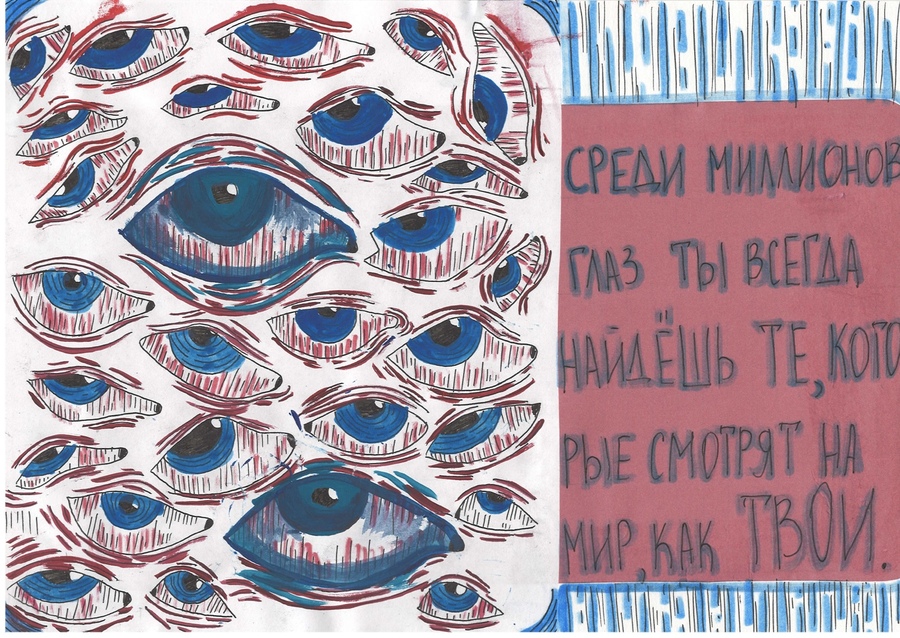 СРЕДИ МИЛЛИОНОВ
ГЛАЗ ТЫ ВСЕГДА
НАЙДЁШЬ ТЕ, КОТО
РЫЕ СМОТРЯТ НА
МИР, КАК ТВОИ.